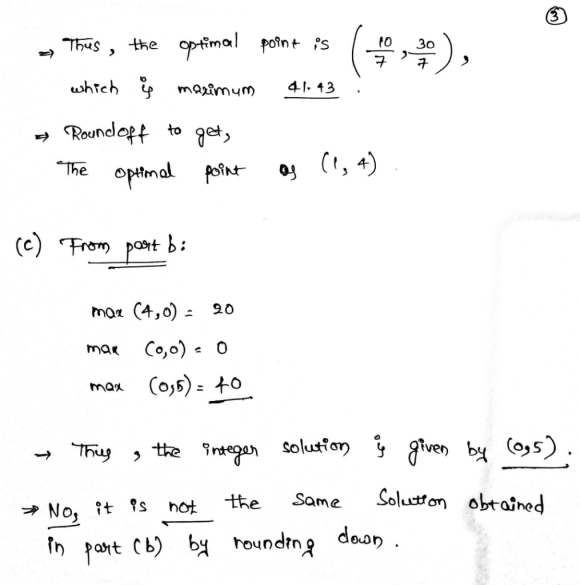 ③
⇒ Thus, the optimal point is (10/7, 30/7),
which is maximum 41.43.
⇒ Roundoff to get,
The optimal point as (1, 4).
(C) From part b:
max (4,0) = 20
max (0,0) = 0
max (0,5) = 40
→ Thus, the integer solution is given by (0,5).
⇒ No, it is not the same solution obtained
in part (b) by rounding down.